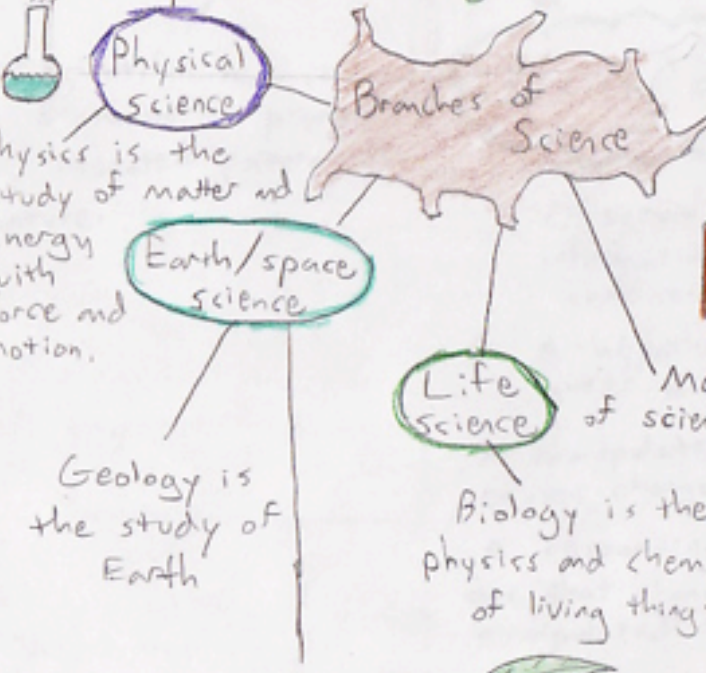 Physical
science
Branches of
Science
hysics is the
tudy of matter and
nergy
with
orce and
notion.
Earth/space
science
Life
science
Mo
of scien
Geology is
the study of
Earth
Biology is the
physics and chem
of living thing